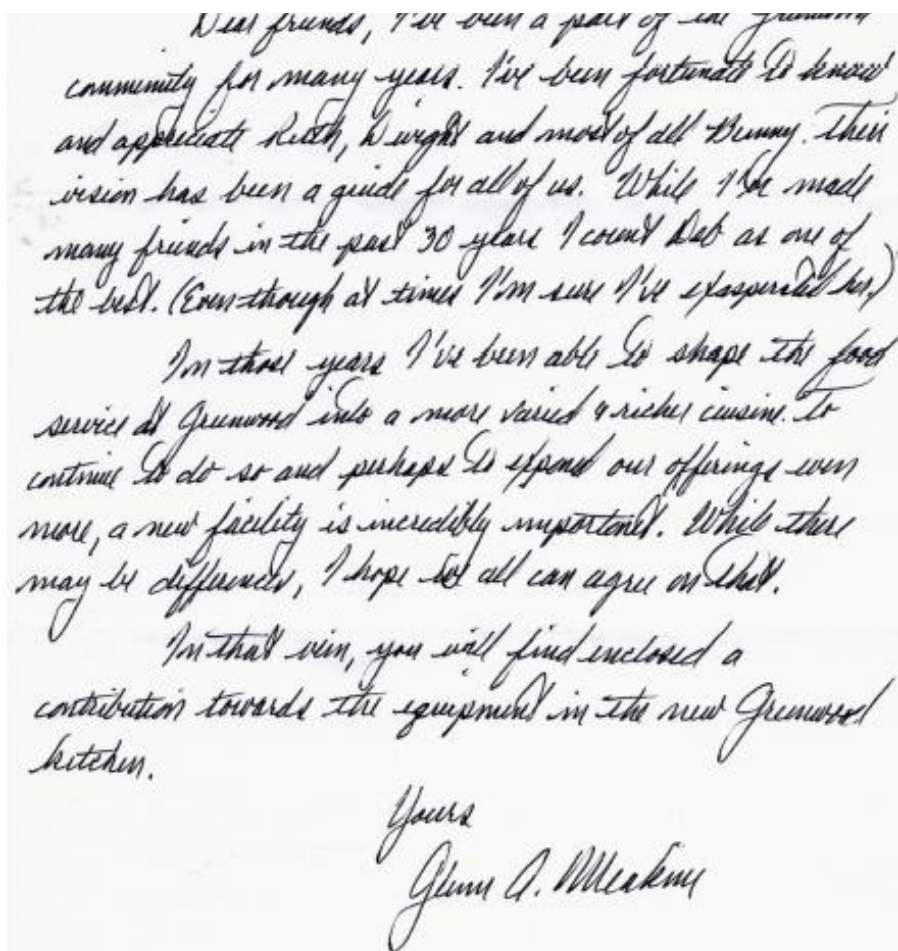 Dear friends, I've been a part of the Greenwood
community for many years. I've been fortunate to know
and appreciate Ruth, Dwight and most of all Bunny. Their
vision has been a guide for all of us. While I've made
many friends in the past 30 years I count Deb as one of
the best. (Even though at times I'm sure I've exasperated her.)
In those years I've been able to shape the food
service at Greenwood into a more varied & richer cuisine. To
continue to do so and perhaps to expand our offerings even
more, a new facility is incredibly important. While there
may be differences, I hope we all can agree on that.
In that vein, you will find enclosed a
contribution towards the equipment in the new Greenwood
kitchen.
Yours
Glenn A.